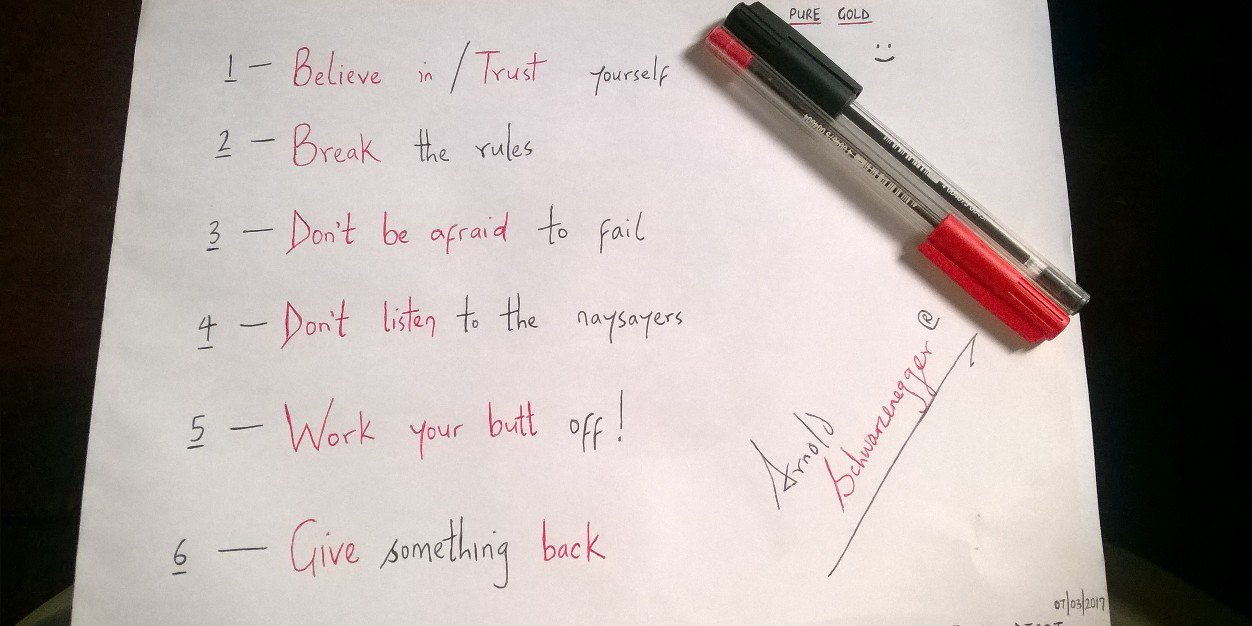 PURE GOLD
1 – Believe in / Trust yourself
2 – Break the rules
3 – Don't be afraid to fail
4 – Don't listen to the naysayers
5 – Work your butt off!
6 – Give something back
Arnold
Schwarzenegger @
07/03/2017